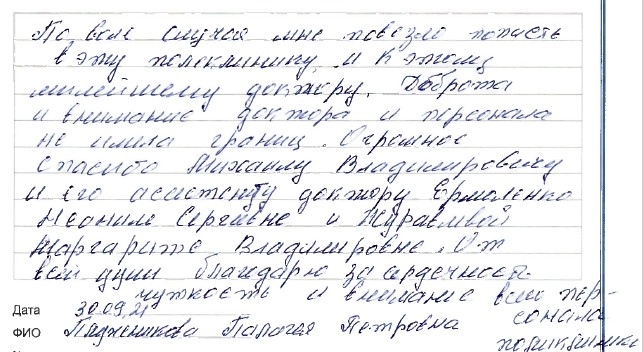 По воле случая мне повезло попасть
в эту поликлинику и к этому
милейшему доктору. Доброта
и внимание доктора и персонала
не имела границ. Огромное
спасибо Михаилу Владимировичу
и его ассистенту доктору Ермоленко
Неониле Сергеевне и Журавлёвой
Маргарите Владимировне. От
всей души благодарю за сердечность
чуткость и внимание всему пер-
сонала
поликлиники
Дата 30.09.21
ФИО Пелагея Петровна